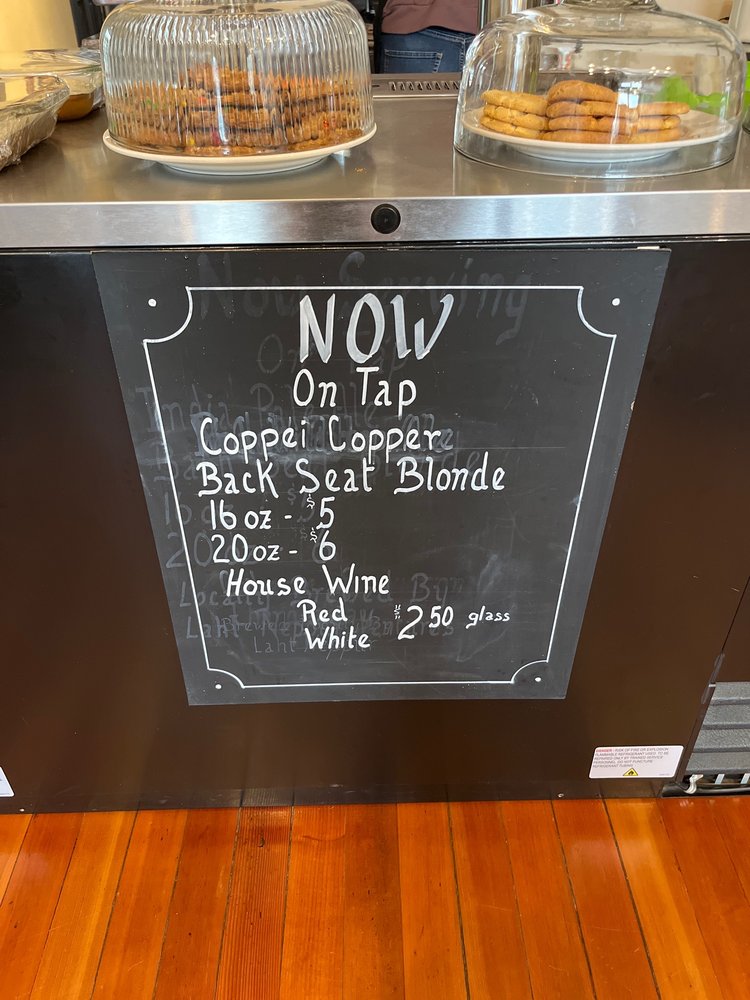 NOW
On Tap
Coppei Copper
Back Seat Blonde
16 oz - $5
20 oz - $6
House Wine
Red
White
$2.50 glass
Now Serving
DANGER - RISK OF FIRE OR EXPLOSION
FLAMMABLE REFRIGERANT USED. TO BE
REPAIRED ONLY BY TRAINED SERVICE
PERSONNEL. DO NOT PUNCTURE
REFRIGERANT TUBING